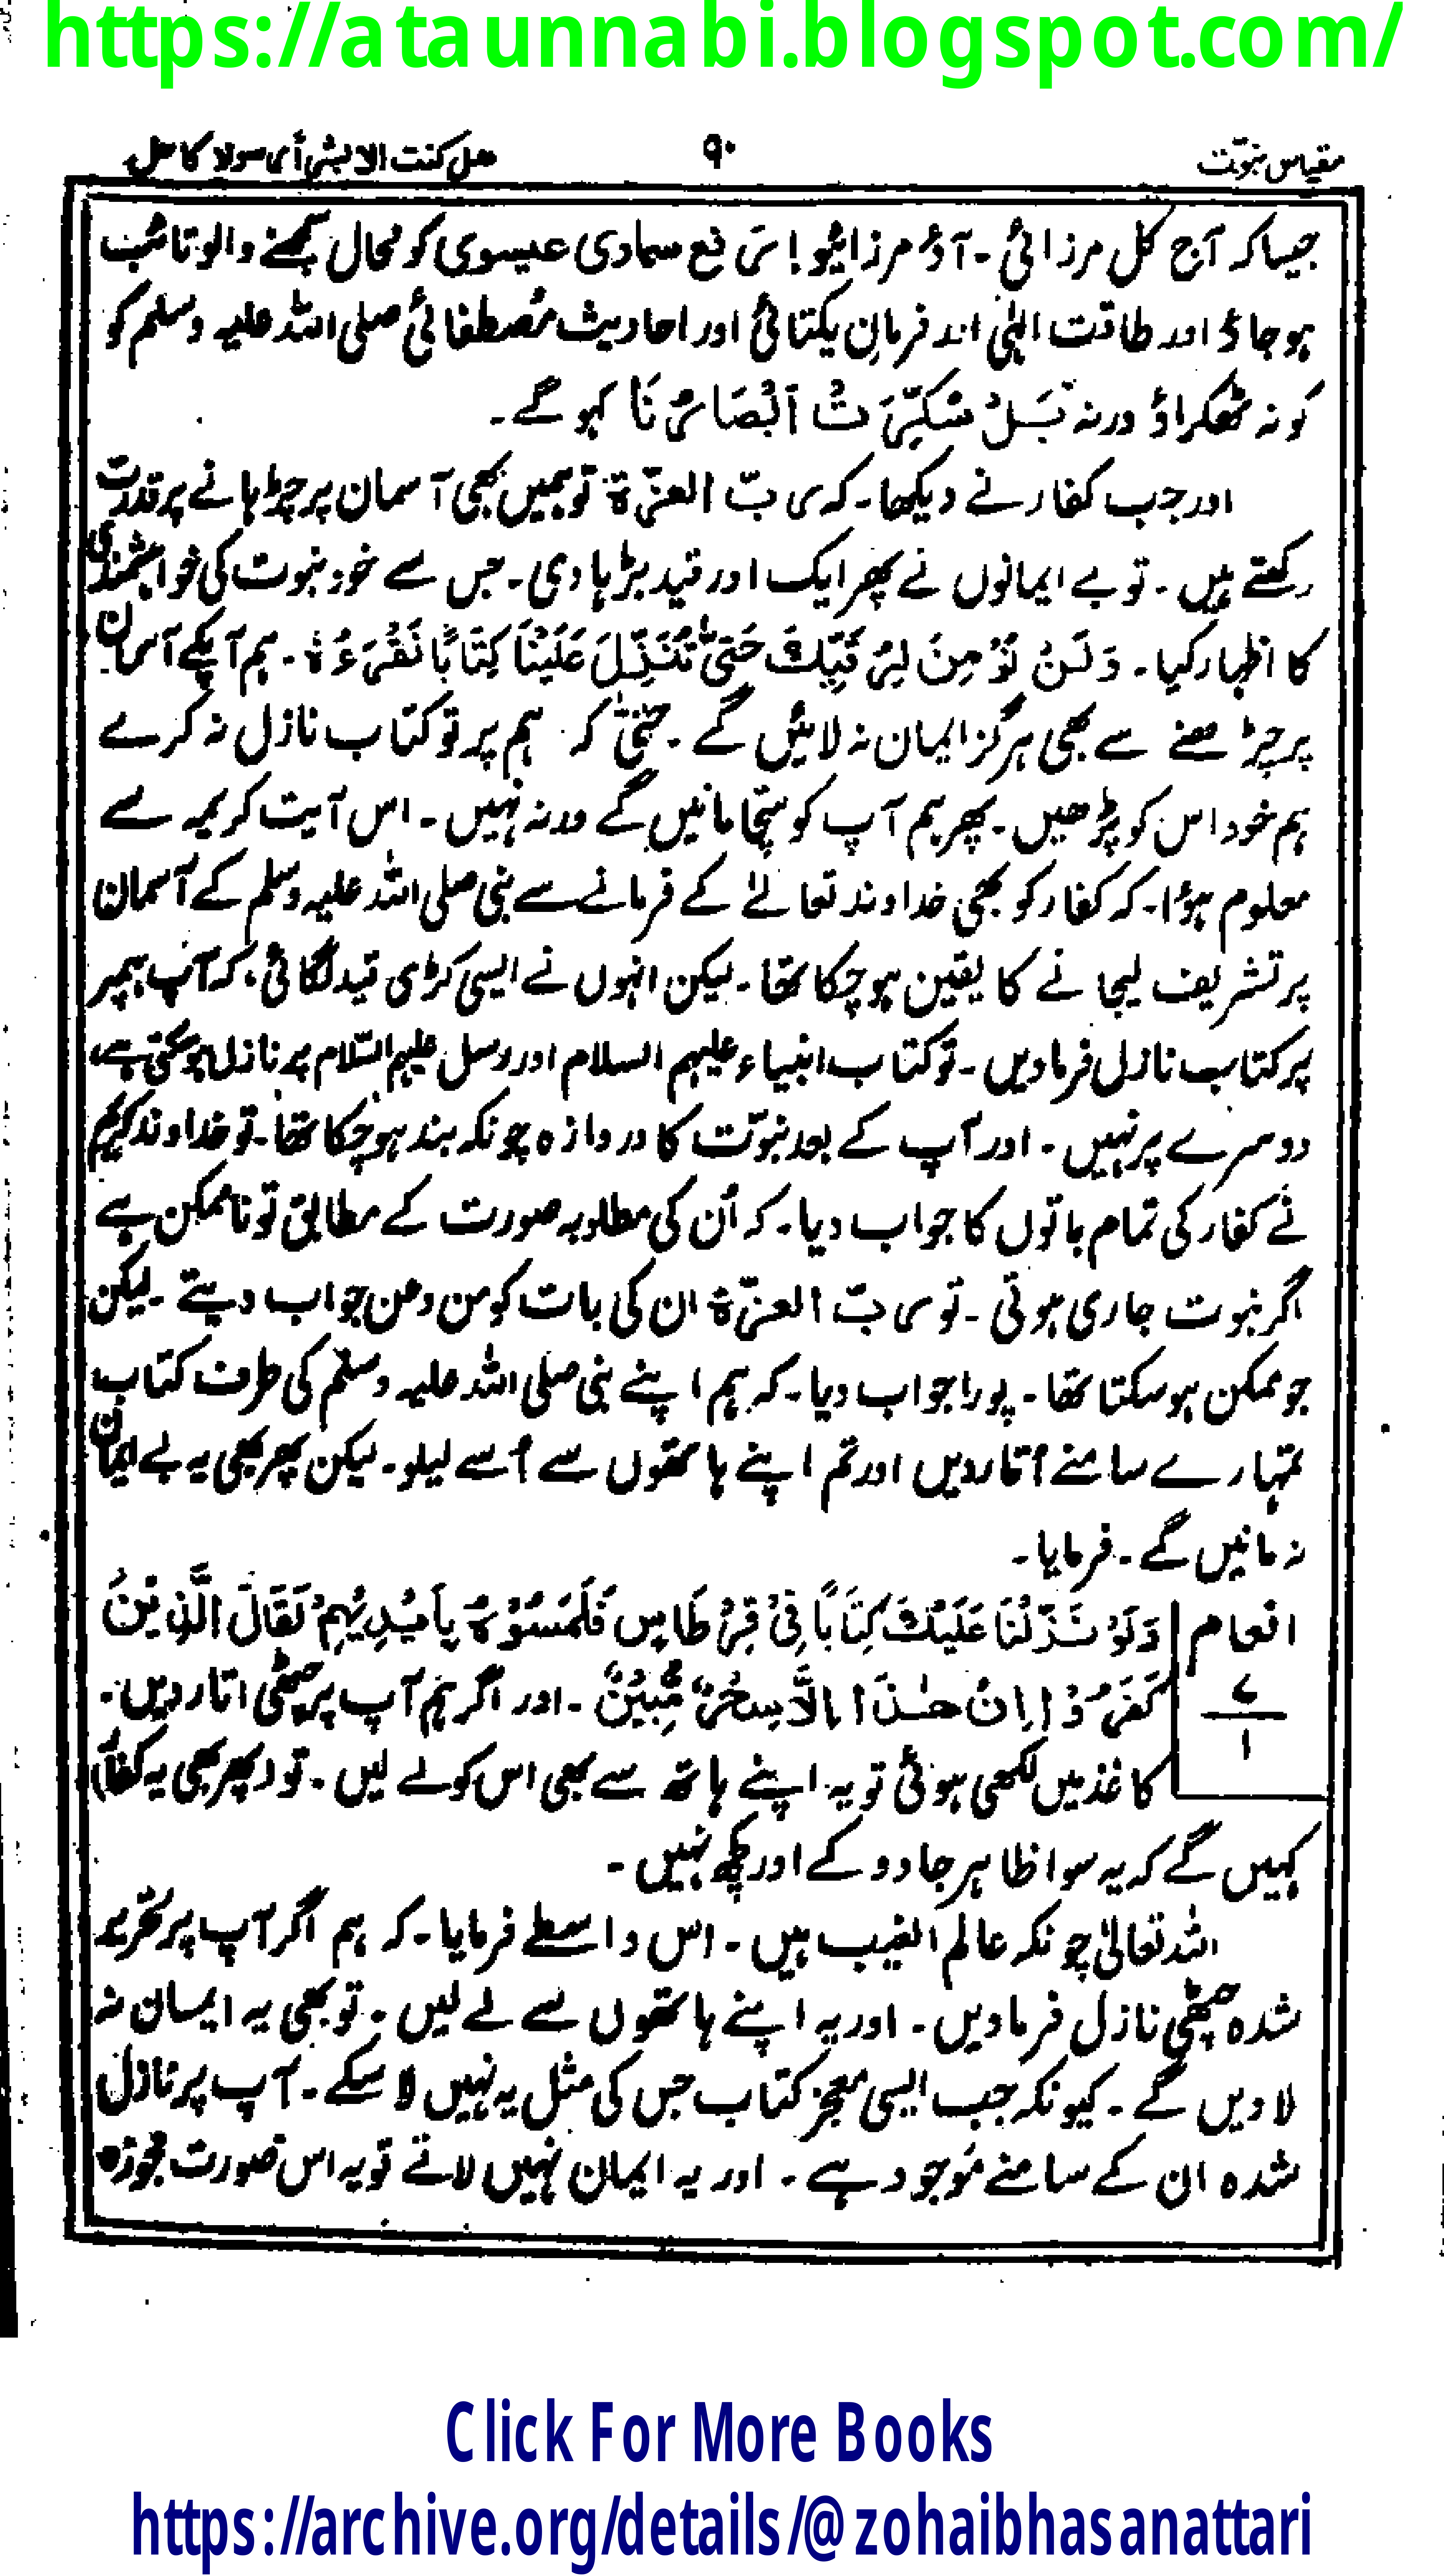 https://ataunnabi.blogspot.com/
مقیاس نبوّت ۹۰ ھل کنت الا بشرا رسولا کا حل
جیسا کہ آج کل مرزائی ۔ آؤ مرزائیو! رفع سماوی عیسوی کو محال سمجھنے والو تائب
ہو جاؤ اور طاقت الہٰی اور فرمانِ یکتائی اور احادیث مُصطفائی صلی اللہ علیہ وسلم کو
کو نہ ٹھکراؤ ورنہ بَلْ سُكِّرَتْ اَبْصَارُنَا کہو گے ۔
اور جب کفار نے دیکھا ۔ کہ ربّ العزّۃ تو ہمیں بھی آسمان پر چڑہانے پر قدرت
رکھتے ہیں ۔ تو بے ایمانوں نے پھر ایک اور قید بڑہا دی ۔ جس سے خود نبوت کی خواہشمندی
کا اظہار کیا ۔ وَلَنْ نُؤْمِنَ لِرُقِیِّكَ حَتّٰی تُنَزِّلَ عَلَیْنَا کِتَابًا نَقْرَءُہٗ ۔ ہم آپکے آسمان
پر چڑھنے سے بھی ہرگز ایمان نہ لائیں گے ۔ حتّیٰ کہ ہم پر تو کتاب نازل نہ کرے
ہم خود اس کو پڑھیں ۔ پھر ہم آپ کو سچّا مانیں گے ورنہ نہیں ۔ اس آیت کریمہ سے
معلوم ہؤا ۔ کہ کفار کو بھی خداوند تعالےٰ کے فرمانے سے نبی صلی اللہ علیہ وسلم کے آسمان
پر تشریف لیجانے کا یقین ہو چکا تھا ۔ لیکن انہوں نے ایسی کڑی قید لگائی ، کہ آپ ہمپر
پر کتاب نازل فرمادیں ۔ تو کتاب انبیاء علیہم السلام اور رسل علیہم السّلام پر نازل ہو سکتی ہے ،
دوسرے پر نہیں ۔ اور آپ کے بعد نبوّت کا دروازہ چونکہ بند ہو چکا تھا ۔ تو خداوند کریم
نے کفار کی تمام باتوں کا جواب دیا ۔ کہ اُن کی مطلوبہ صورت کے مطابق تو ناممکن ہے
اگر نبوت جاری ہوتی ۔ تو ربّ العزّۃ ان کی بات کو من وعن جواب دیتے ۔ لیکن
جو ممکن ہو سکتا تھا ۔ پورا جواب دیا ۔ کہ ہم اپنے نبی صلی اللہ علیہ وسلّم کی طرف کتاب
تمہارے سامنے اُتار دیں اور تم اپنے ہاتھوں سے اُسے لیلو ۔ لیکن پھر بھی یہ بے ایمان
نہ مانیں گے ۔ فرمایا ۔
انعام
۷
۱
وَلَوْ نَزَّلْنَا عَلَیْكَ کِتَابًا فِیْ قِرْطَاسٍ فَلَمَسُوْہُ بِاَیْدِیْہِمْ لَقَالَ الَّذِیْنَ
کَفَرُوْا اِنْ ھٰذَا اِلَّا سِحْرٌ مُّبِیْنٌ ۔ اور اگر ہم آپ پر چٹھی اتار دیں ۔
کاغذ میں لکھی ہوئی تو یہ اپنے ہاتھ سے بھی اس کو لے لیں ۔ تو (پھر بھی یہ کفار)
کہیں گے کہ یہ سوا ظاہر جادو کے اور کچھ نہیں ۔
اللہ تعالیٰ چونکہ عالم الغیب ہیں ۔ اس واسطے فرمایا ۔ کہ ہم اگر آپ پر تحریر
شدہ چٹھی نازل فرمادیں ۔ اور یہ اپنے ہاتھوں سے لے لیں ۔ تو بھی یہ ایمان نہ
لادیں گے ۔ کیونکہ جب ایسی معجز کتاب جس کی مثل یہ نہیں لا سکے ۔ آپ پر نازل
شدہ ان کے سامنے موجود ہے ۔ اور یہ ایمان نہیں لاتے تو یہ اس صورت مجوزہ
Click For More Books
https://archive.org/details/@zohaibhasanattari